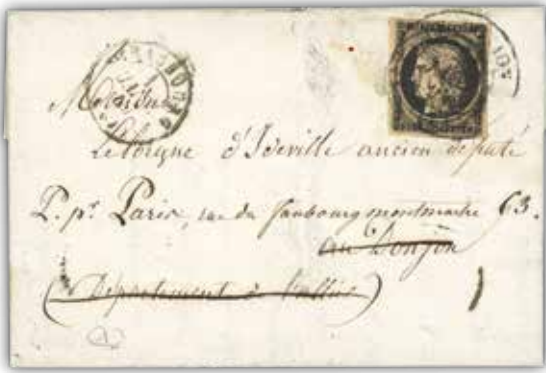 Monsieur
Lelorgne d'Ideville ancien député
P. pt Paris, rue du faubourg montmartre 63.
au Donjon
(Département de l'allier)